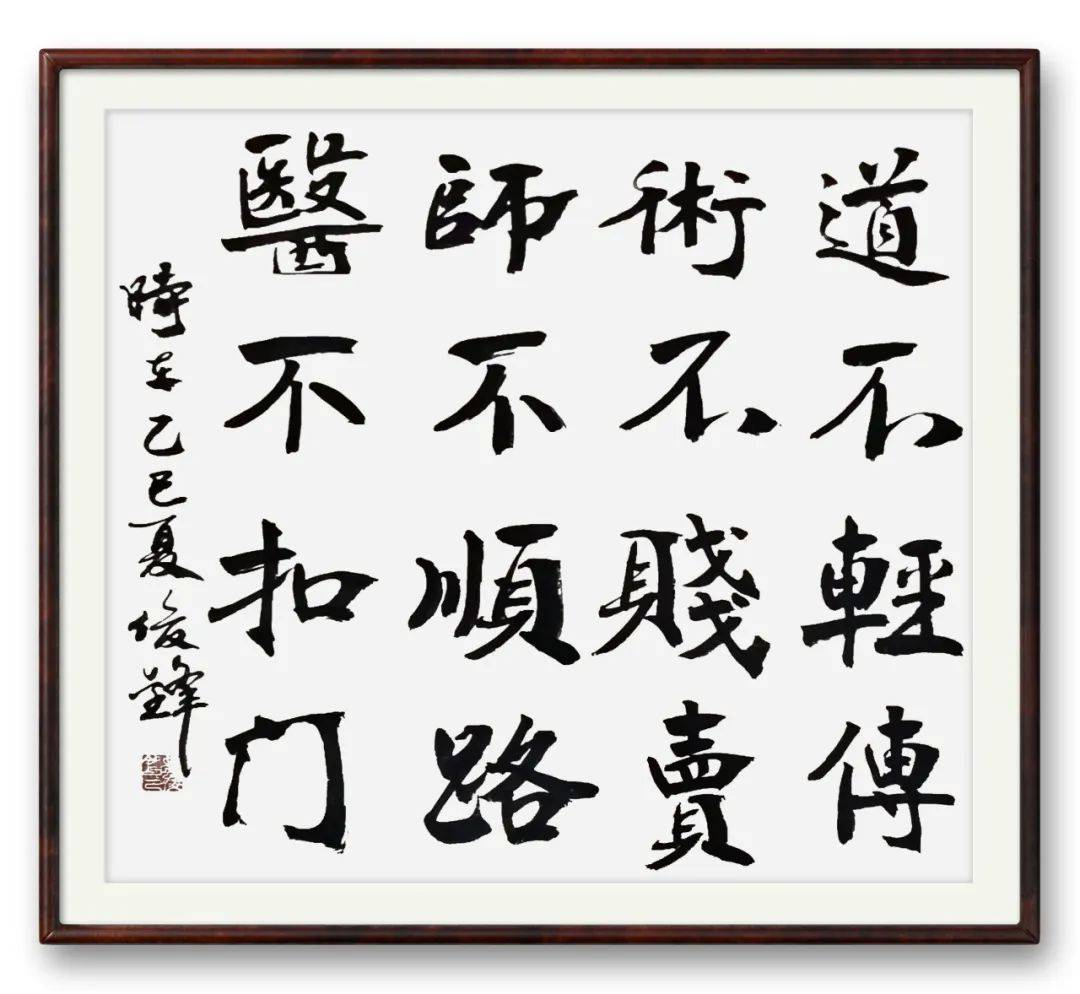 道不輕傳
術不賤賣
師不順路
醫不扣门
時在乙巳夏俊鋒